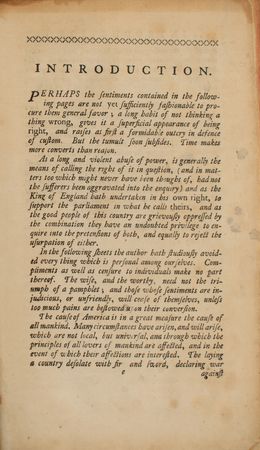 INTRODUCTION.
PERHAPS the ſentiments contained in the follow-
ing pages are not yet ſufficiently faſhionable to pro-
cure them general favor; a long habit of not thinking a
thing wrong, gives it a ſuperficial appearance of being
right, and raiſes at firſt a formidable outcry in defence
of cuſtom. But the tumult ſoon ſubſides. Time makes
more converts than reaſon.
As a long and violent abuſe of power, is generally the
means of calling the right of it in queſtion, (and in mat-
ters too which might never have been thought of, had not
the ſufferers been aggravated into the enquiry) and as the
King of England hath undertaken in his own right, to
ſupport the parliament in what he calls theirs, and as
the good people of this country are grievouſly oppreſſed by
the combination they have an undoubted privilege to en-
quire into the pretenſions of both, and equally to reject the
uſurpation of either.
In the following ſheets the author hath ſtudiouſly avoid-
ed every thing which is perſonal among ourſelves. Com-
pliments as well as cenſure to individuals make no part
thereof. The wiſe, and the worthy, need not the tri-
umph of a pamphlet; and thoſe whoſe ſentiments are in-
judicious, or unfriendly, will ceaſe of themſelves, unleſs
too much pains are beſtowed upon their converſion.
The cauſe of America is in a great meaſure the cauſe of
all mankind. Many circumſtances have ariſen, and will ariſe,
which are not local, but univerſal, and through which the
principles of all lovers of mankind are affected, and in the
event of which their affections are intereſted. The laying
a country deſolate with fir and ſword, declaring war
againſt